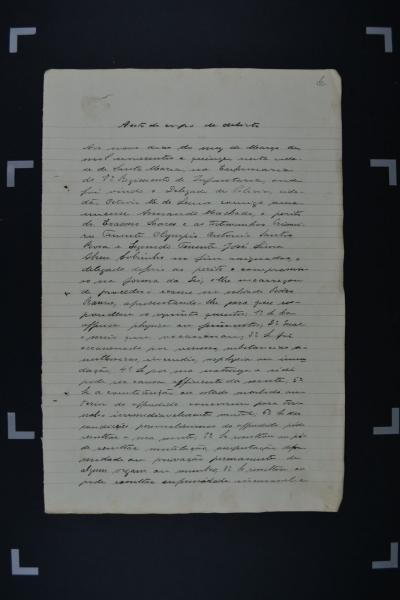 Auto de corpo de delicto
Aos nove dias do mez de Março de
mil novecentos e quinze, nesta cida-
de de Santa Maria, na Enfermaria
do 7º Regimento de Infantaria, onde
foi vindo o Delegado de Policia, cida-
dão Octavio de Lemos comigo ama-
nuense Armando Machado, o perito
dr. Soares e as testemunhas Primei-
ro Tenente Olympio
Rosa e Segundo Tenente José Lima
no fim assignados, o
delegado deferio ao perito o compromis-
so na forma da lei, e lhe encarregou
de proceder a exame no soldado Pedro
apresentando-lhe para que res-
pondesse os seguintes quesitos: 1º Se ha
offensa physica ou ferimentos; 2º Qual
o meio que occasionou; 3º Se foi
occasionado por veneno, substancias a-
nesthesicas, incendio, asphyxia ou inun-
dação; 4º Se por sua natureza e séde
pode ser causa efficiente da morte; 5º
Se a constituição ou estado morbido an-
terior do offendido concorrem para tor-
nal-o irremediavelmente mortal; 6º Se das
condições personalissimas do offendido póde
resultar a sua morte; 7º Se resultou ou pó-
de resultar mutilação, amputação, defor-
midade ou privação permanente de
algum orgam ou membro; 8º Se resultou ou
pode resultar enfermidade incuravel e